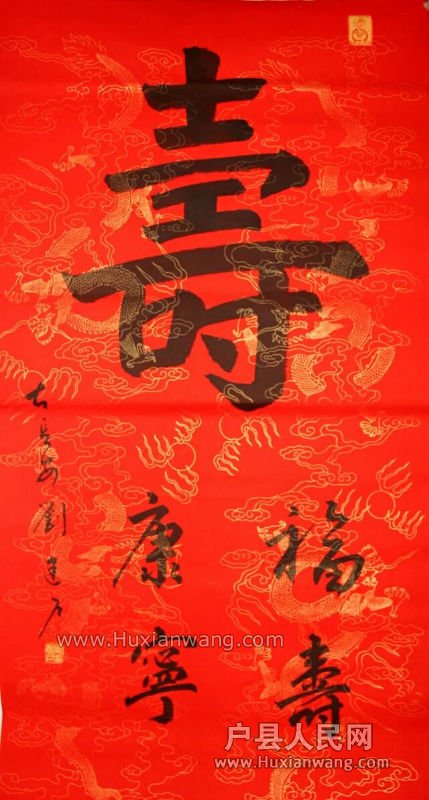 壽
福壽
康寧
古長安劉建石
www.Huxianwang.com
户县人民网
www.Huxianwang.com